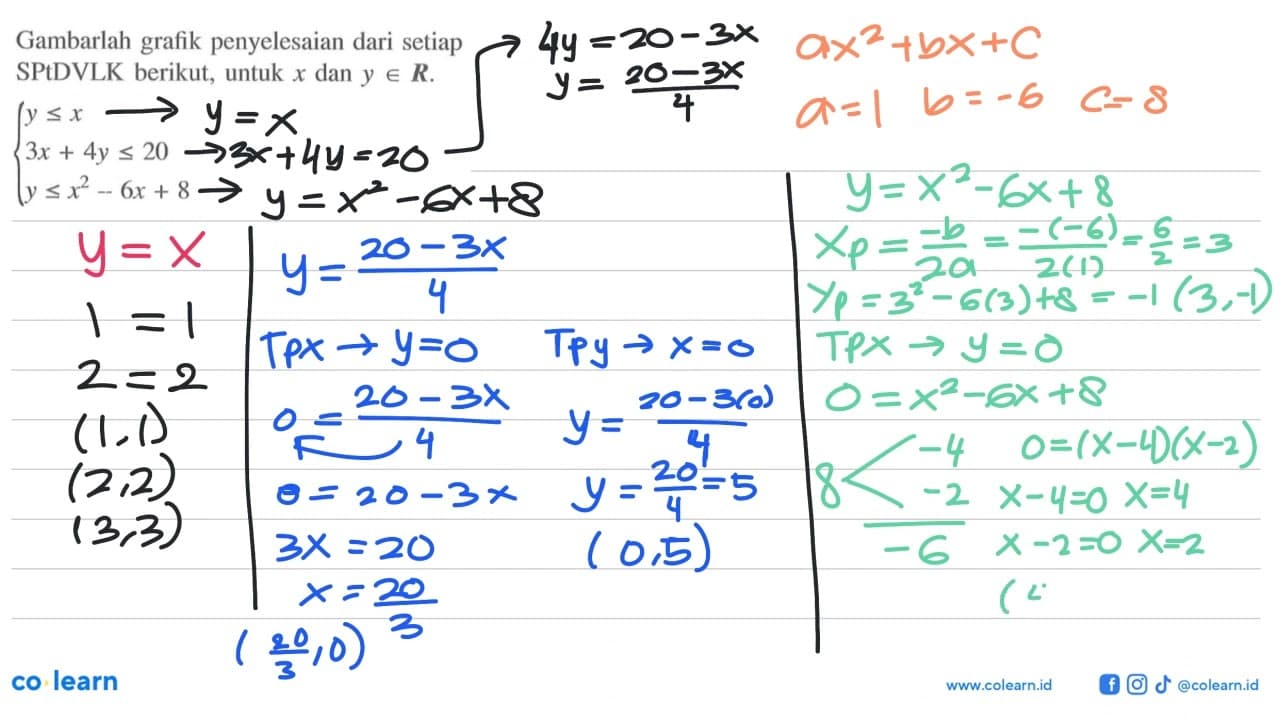 Gambarlah grafik penyelesaian dari setiap
SPtDVLK berikut, untuk x dan y ∈ R.
y ≤ x → y = x
3x + 4y ≤ 20 → 3x + 4y = 20
y ≤ x² – 6x + 8 → y = x² – 6x + 8
4y = 20 – 3x
y = (20 – 3x)/4
ax² + bx + c
a = 1 b = -6 c = 8
y = x
1 = 1
2 = 2
(1,1)
(2,2)
(3,3)
y = (20 – 3x)/4
Tpx → y = 0
0 = (20 – 3x)/4
0 = 20 – 3x
3x = 20
x = 20/3
(20/3, 0)
Tpy → x = 0
y = (20 – 3(0))/4
y = 20/4 = 5
(0,5)
y = x² – 6x + 8
Xp = -b/2a = -(-6)/2(1) = 6/2 = 3
Yp = 3² – 6(3) + 8 = -1 (3,-1)
Tpx → y = 0
0 = x² – 6x + 8
8 < -4 0 = (x – 4)(x – 2)
-2 x – 4 = 0 x = 4
-6 x – 2 = 0 x = 2
(
co learn
www.colearn.id
@colearn.id